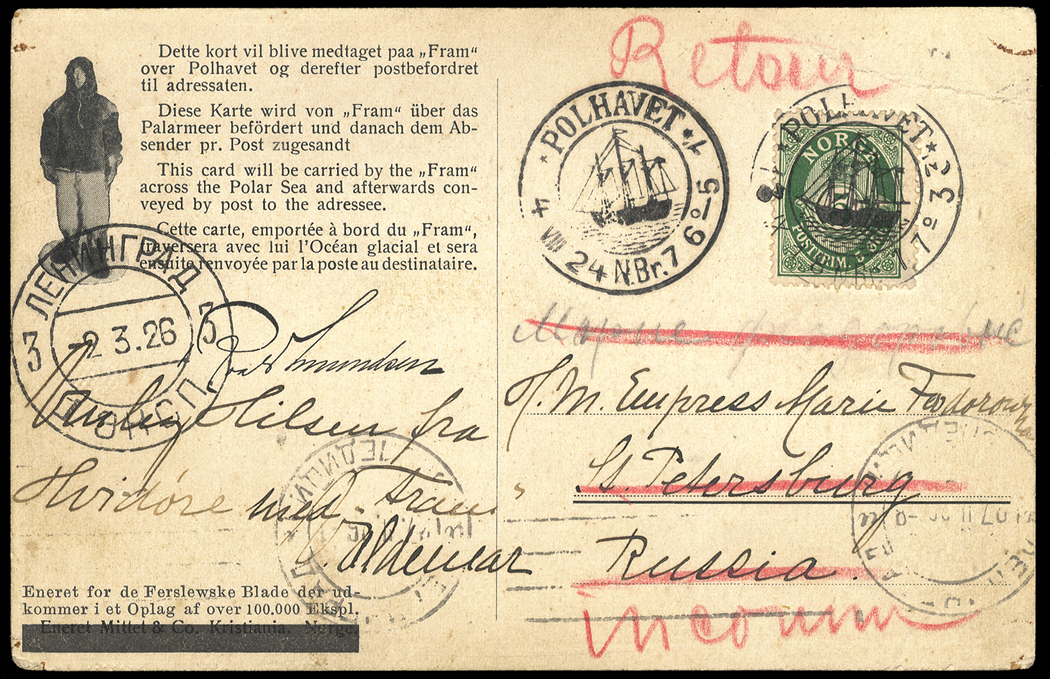 Dette kort vil blive medtaget paa „Fram“
over Polhavet og derefter postbefordret
til adressaten.
Diese Karte wird von „Fram“ über das
Palarmeer befördert und danach dem Ab-
sender pr. Post zugesandt
This card will be carried by the „Fram“
across the Polar Sea and afterwards con-
veyed by post to the adressee.
Cette carte, emportée à bord du „Fram“,
traversera avec lui l'Océan glacial et sera
ensuite renvoyée par la poste au destinataire.
ЛЕНИНГРАД
3 -2.3.26 3
Hilsen fra
Hvidöre med Fram
Valdemar
Eneret for de Ferslewske Blade der ud-
kommer i et Oplag af over 100.000 Ekspl.
Eneret Mittet & Co. Kristiania. Norge.
Retour
POLHAVET
4 VIII 24 N.Br. 76º-5
POLHAVET
NORGE
5
Марие
H. M. Empress Marie Feodorowna
St Petersburg
Russia.
inconnu